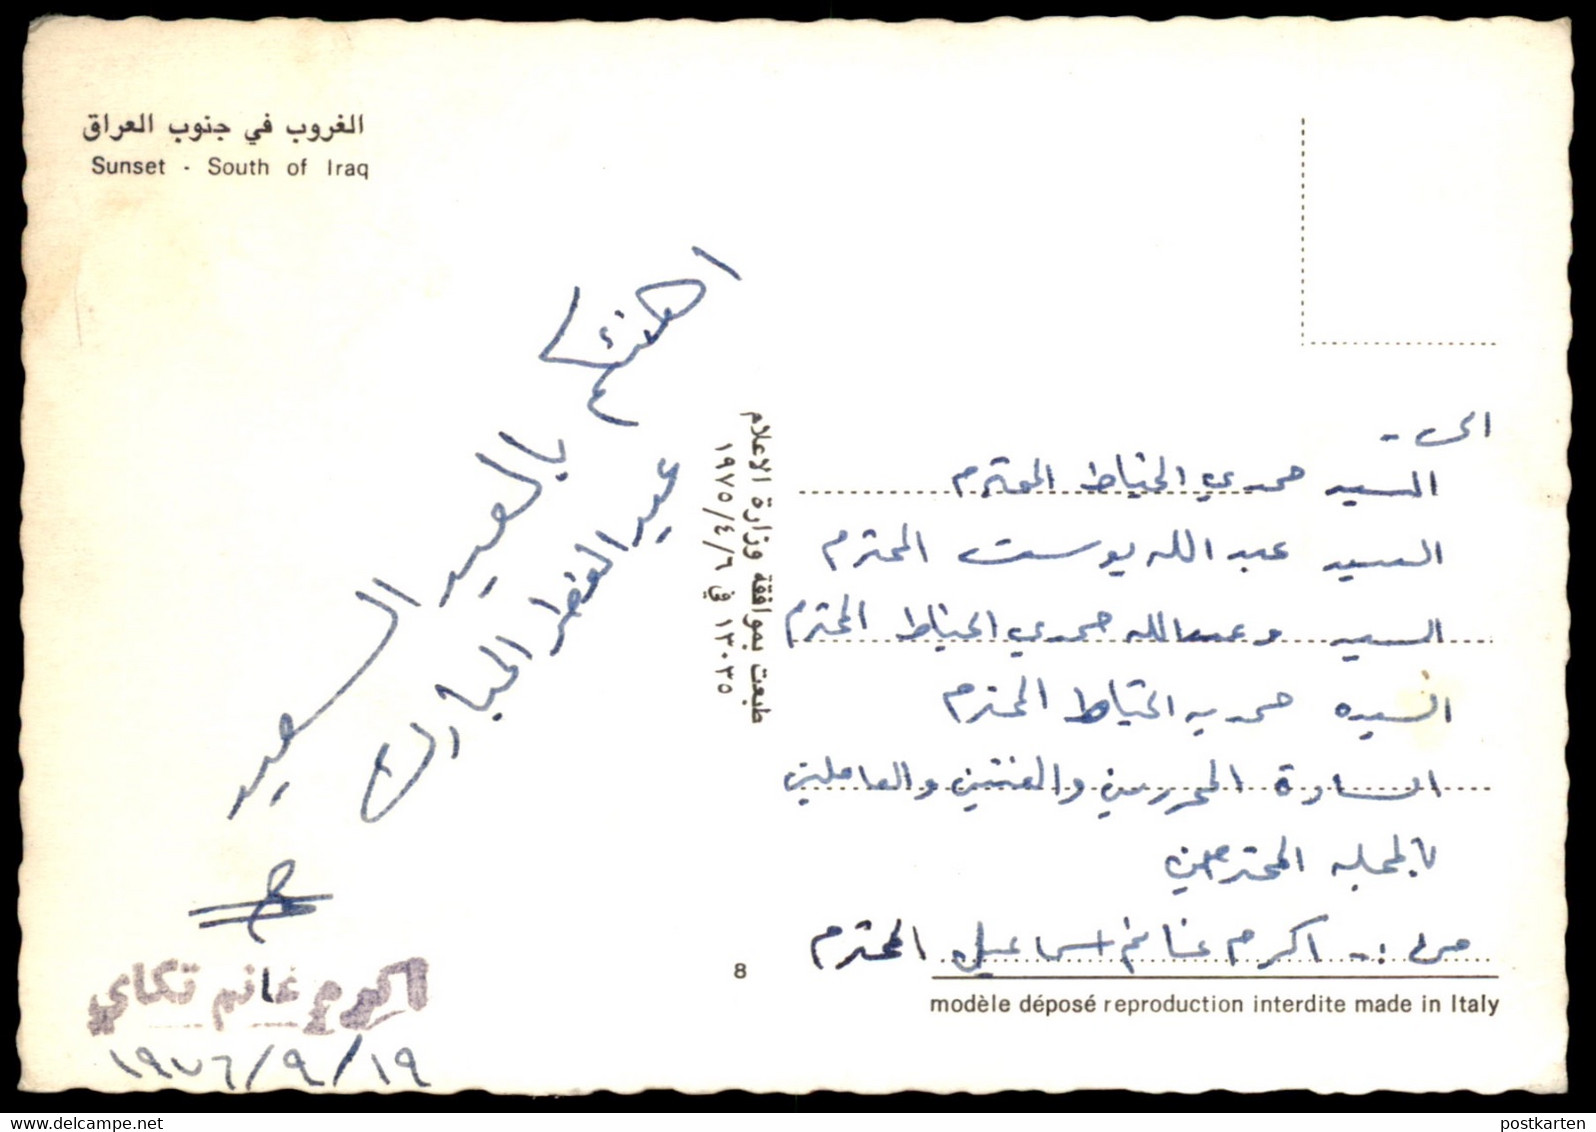 الغروب في جنوب العراق
Sunset - South of Iraq
اهنئكم
بالعيد السعيد
عيد الفطر المبارك
اكرم غانم تكاي
١٩٧٦/٩/١٩
طبعت بموافقة وزارة الاعلام
١٣٠٣٥ في ١٩٧٥/٤/٦
الى -
السيد حمدي الخياط المحترم
السيد عبد الله يوسف المحترم
السيد وعبدالله حمدي الخياط المحترم
السيده حمديه الخياط المحترم
السادة المحررين والفنين والعاملين
بالمجله المحترمين
من :- اكرم غانم اسماعيل المحترم
8
modèle déposé reproduction interdite made in Italy
postkarten